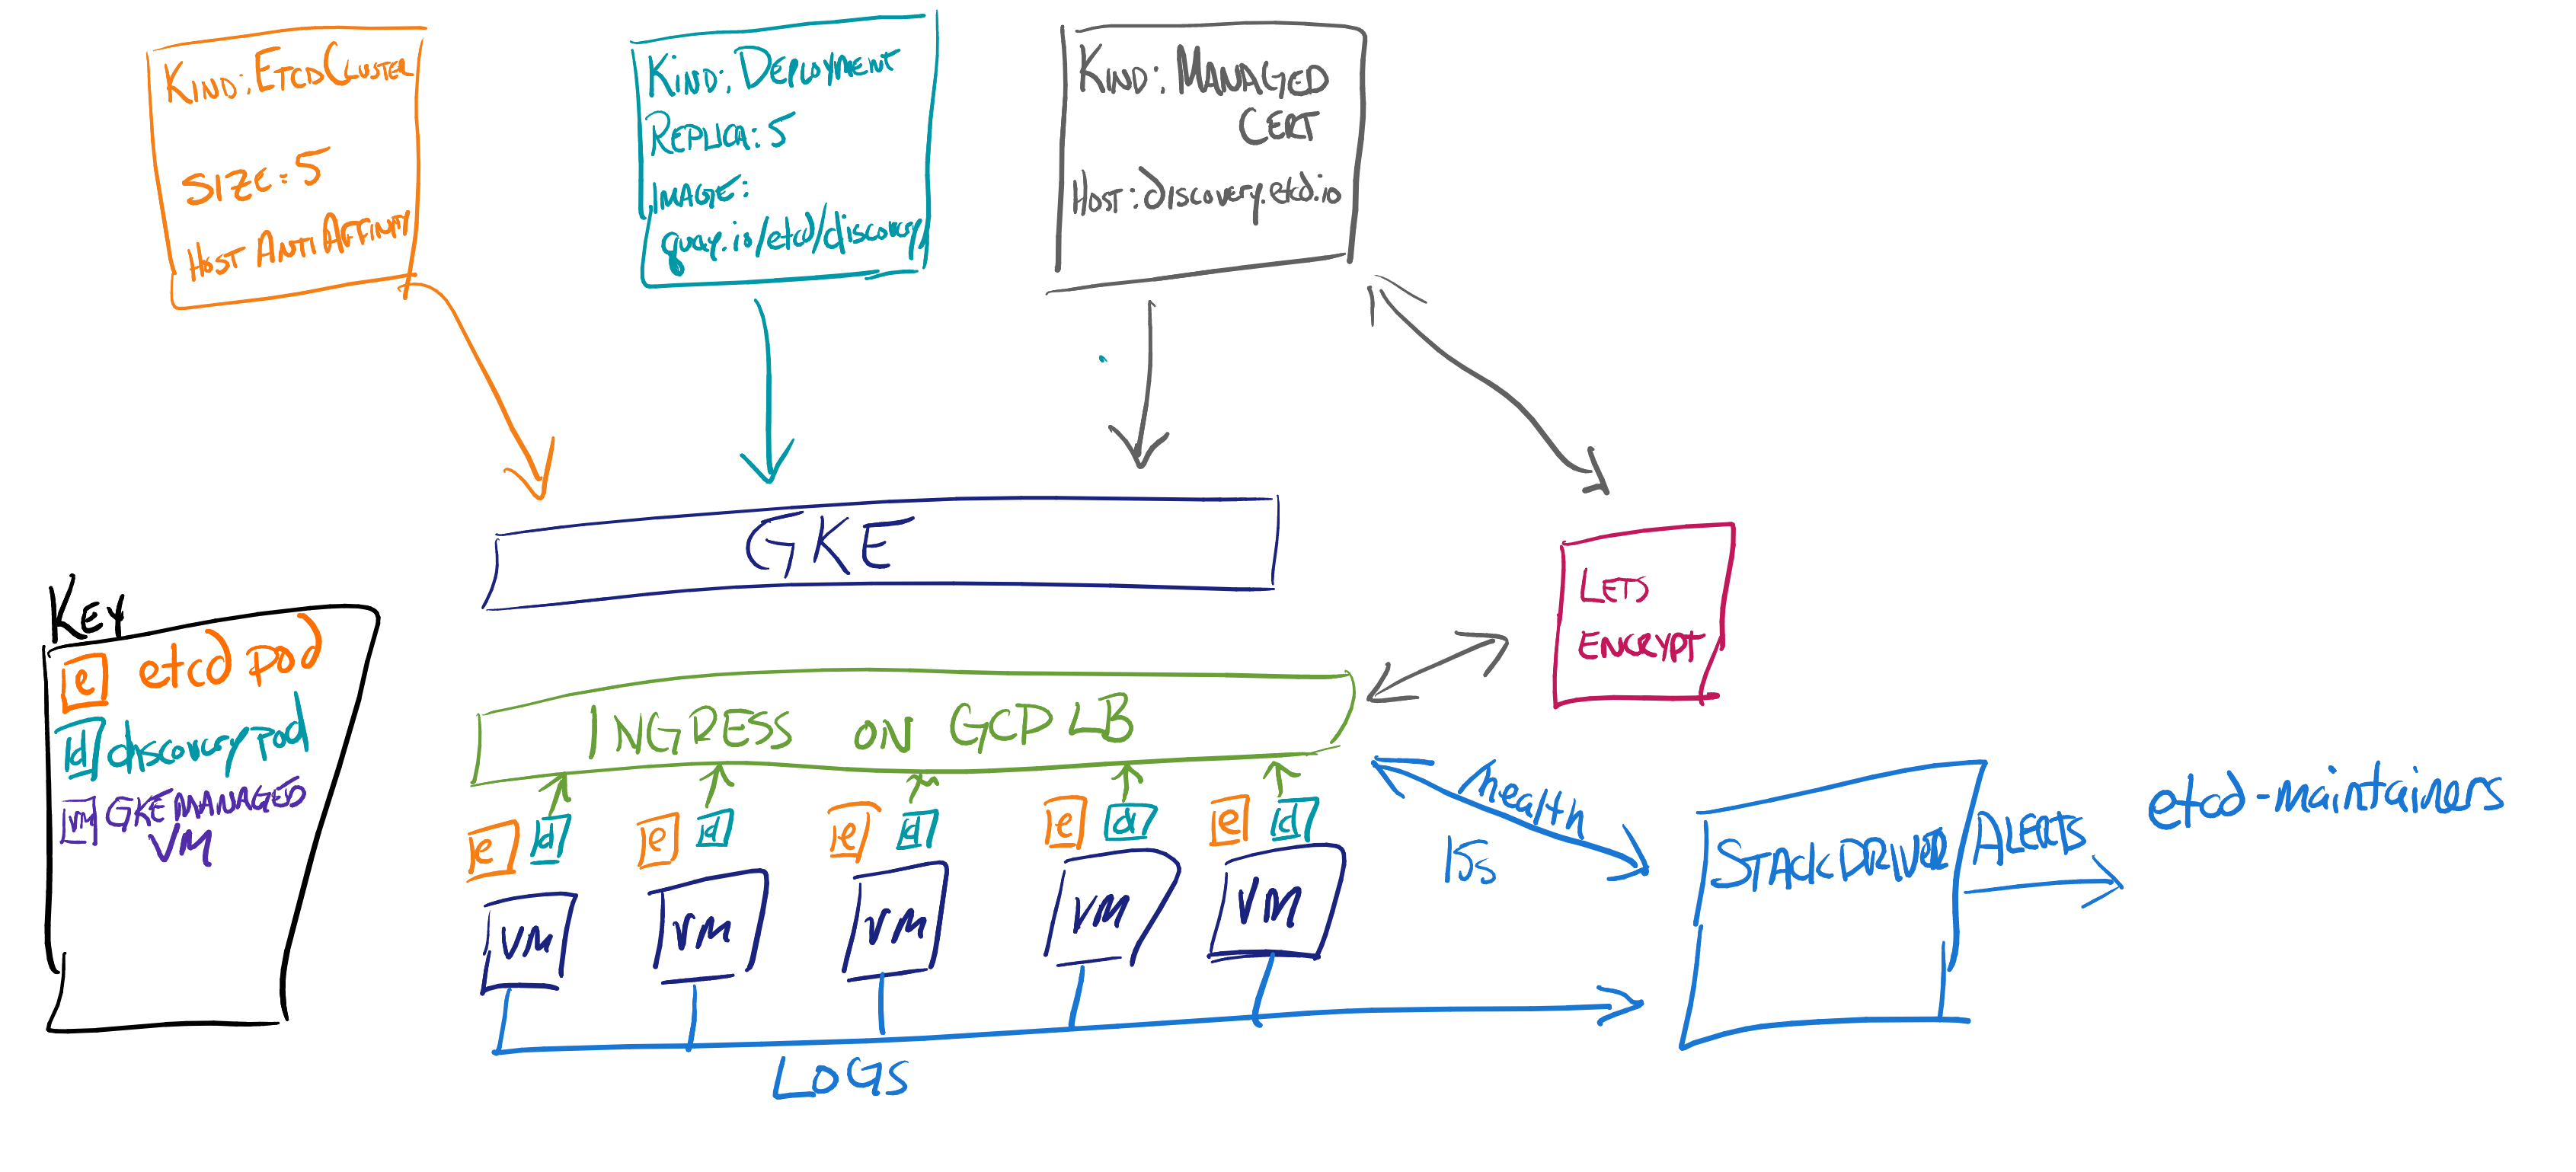 KIND: ETCDCLUSTER
SIZE=5
HOST ANTI AFFINITY
KIND: DEPLOYMENT
REPLICA: 5
IMAGE:
quay.io/etcd/discovery
KIND: MANAGED
CERT
HOST: discovery.etcd.io
GKE
LETS
ENCRYPT
KEY
e etcd pod
d discovery pod
VM GKE MANAGED
VM
INGRESS ON GCP LB
e d e d e d e d e d
VM VM VM VM VM
LOGS
health
15s
STACKDRIVER
ALERTS
etcd-maintainers